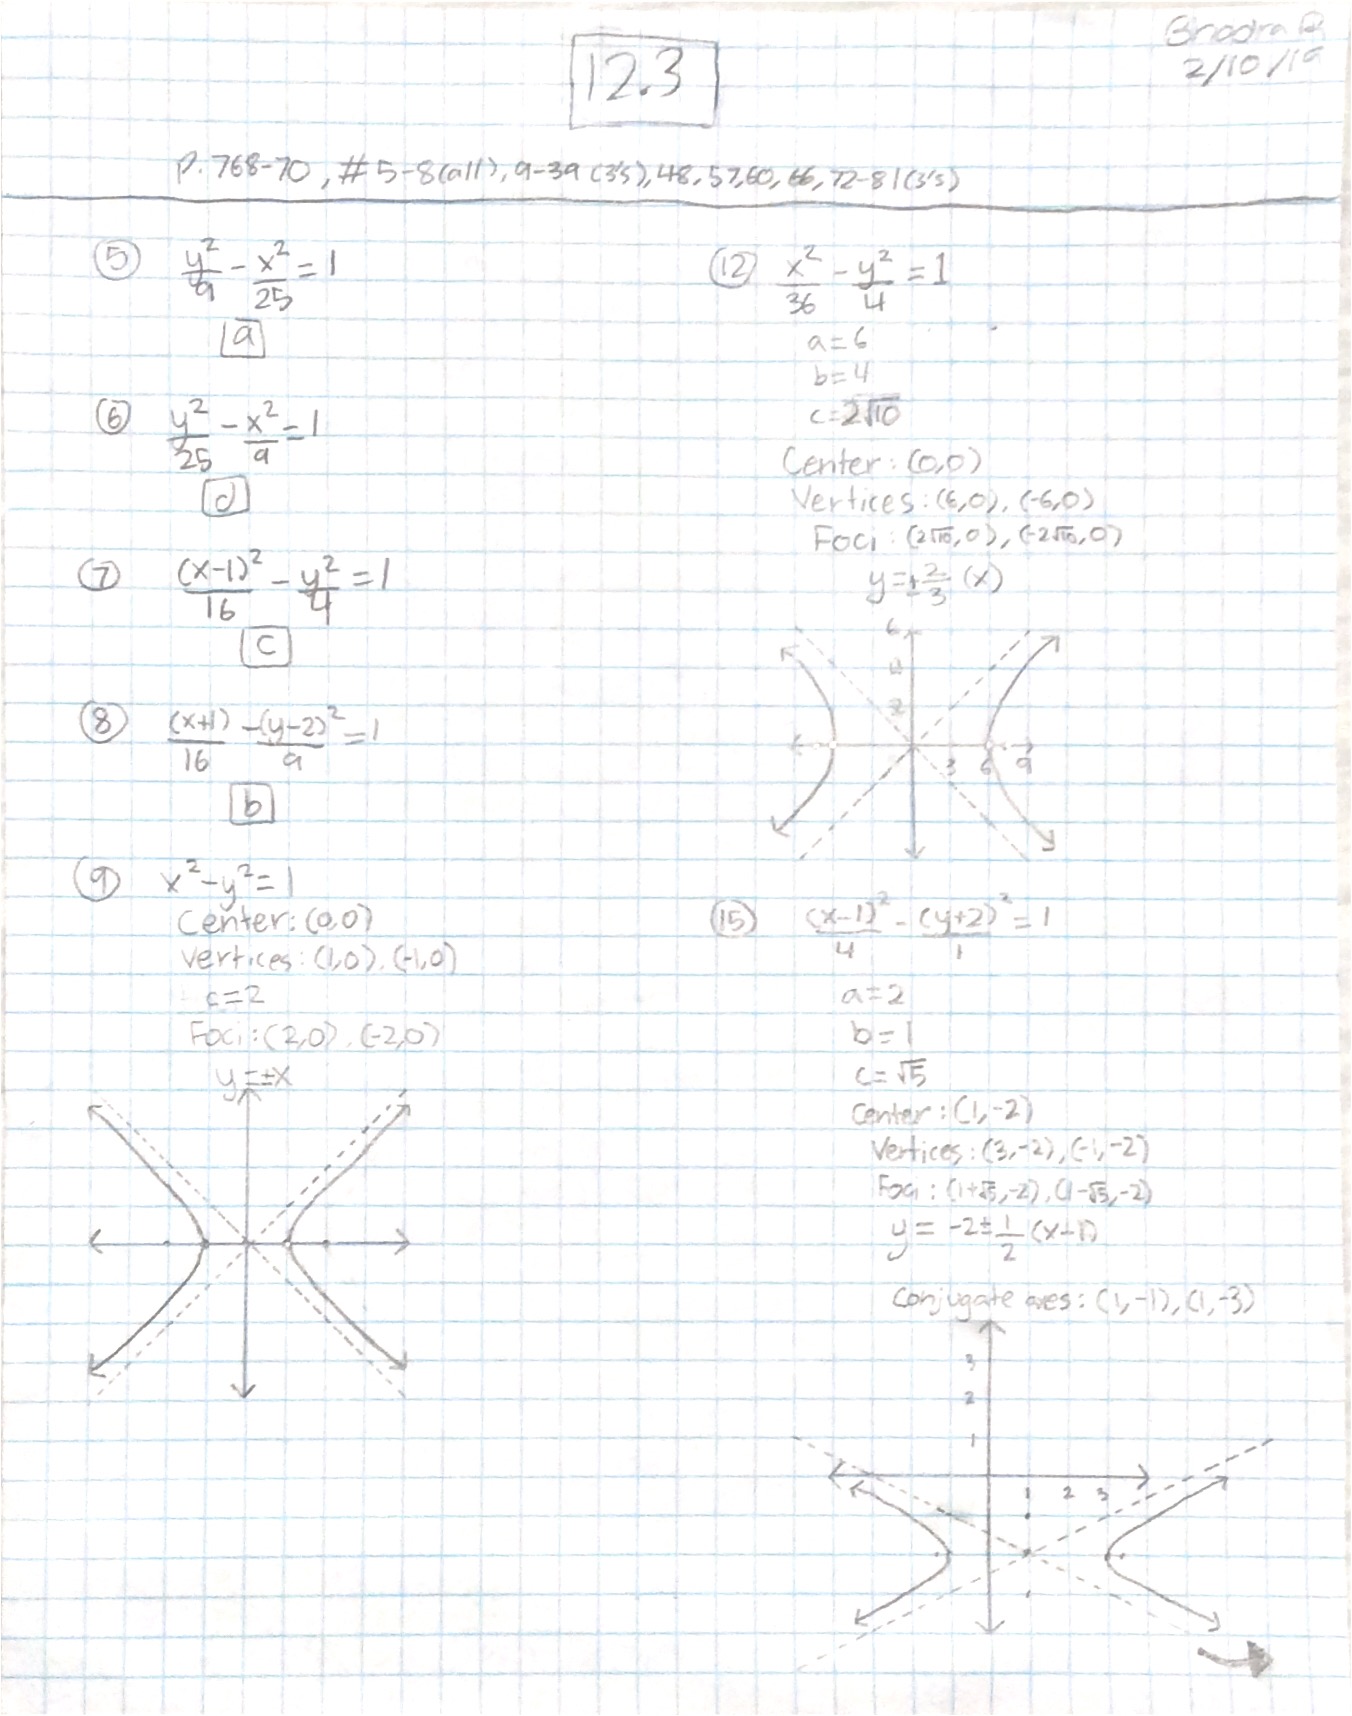 2/10/19
12.3
P. 768-70, # 5-8(all), 9-39 (3's), 48, 57, 60, 66, 72-81 (3's)
⑤ y²/9 - x²/25 = 1
a
⑥ y²/25 - x²/9 = 1
d
⑦ (x-1)²/16 - y²/4 = 1
c
⑧ (x+1)/16 - (y-2)²/9 = 1
b
⑨ x² - y² = 1
Center: (0,0)
Vertices: (1,0), (-1,0)
c=2
Foci: (2,0), (-2,0)
y=±x
⑫ x²/36 - y²/4 = 1
a=6
b=4
c=2√10
Center: (0,0)
Vertices: (6,0), (-6,0)
Foci: (2√10,0), (-2√10,0)
y=±2/3 (x)
6
4
2
3 6 9
⑮ (x-1)²/4 - (y+2)²/1 = 1
a=2
b=1
c=√5
Center: (1,-2)
Vertices: (3,-2), (-1,-2)
Foci: (1+√5,-2), (1-√5,-2)
y = -2±1/2 (x-1)
Conjugate axes: (1,-1), (1,-3)
3
2
1
1 2 3